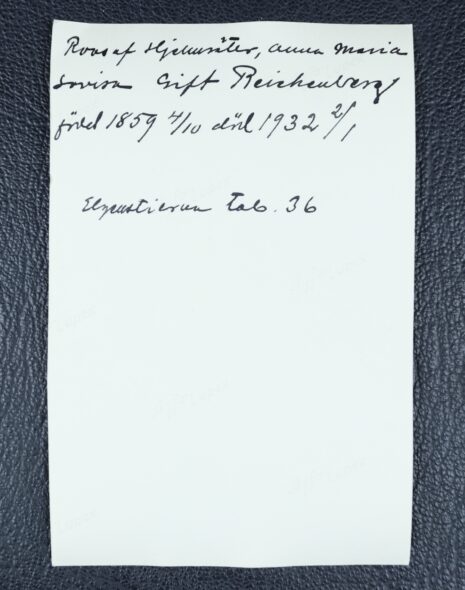 Roos af Hjelmsäter, Anna Maria
Lovisa Gift Reichenberg
född 1859 4/10 död 1932 2/1
Elgenstierna Tab. 36